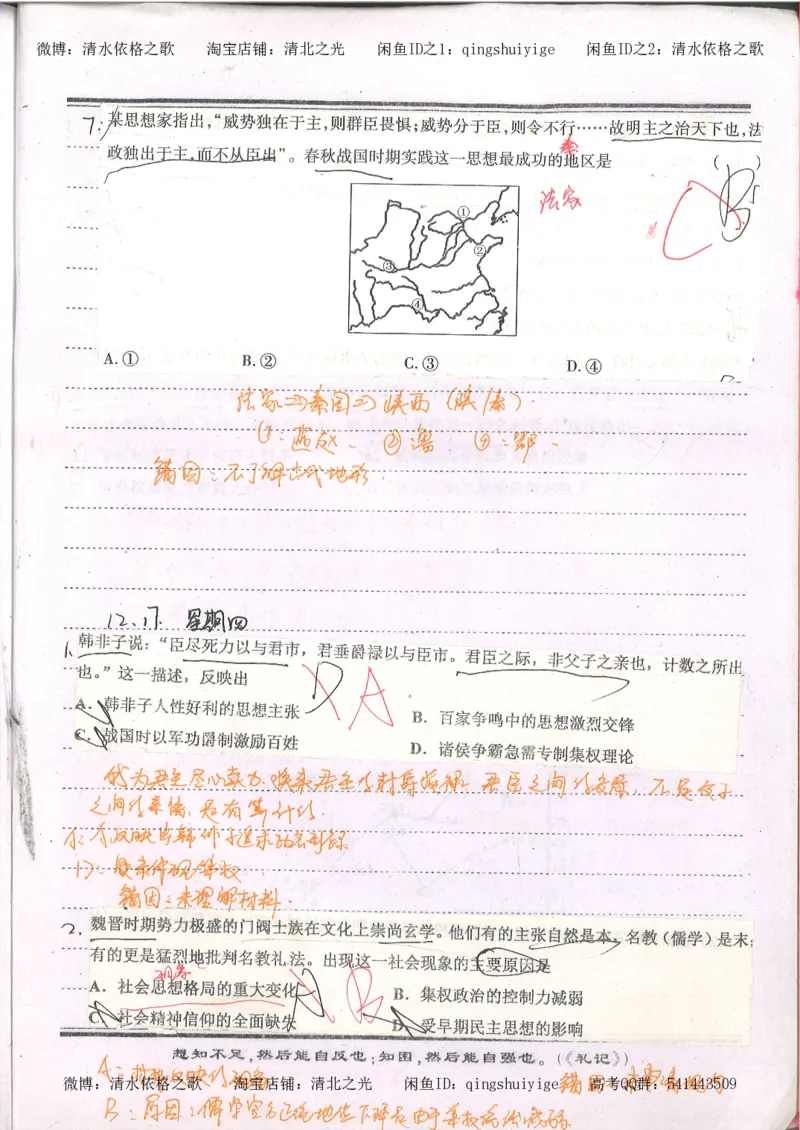 微博：清水依格之歌 淘宝店铺：清北之光 闲鱼ID之1：qingshuiyige 闲鱼ID之2：清水依格之歌
7. 某思想家指出，“威势独在于主，则群臣畏惧；威势分于臣，则令不行……故明主之治天下也，法
政独出于主，而不从臣出”。春秋战国时期实践这一思想最成功的地区是 （ ）
法家
C B
①
②
③
④
A.① B.② C.③ D.④
法家→秦国→陕西（陕/秦）
①：燕赵、 ②鲁 ④：鄂
错因：不了解古代地形
12.17. 星期四
1. 韩非子说：“臣尽死力以与君市，君垂爵禄以与臣市。君臣之际，非父子之亲也，计数之所出
也。”这一描述，反映出
D A
A．韩非子人性好利的思想主张 B．百家争鸣中的思想激烈交锋
C．战国时以军功爵制激励百姓 D．诸侯争霸急需专制集权理论
君臣之间的 不是父子
之间的亲情，
错因：未理解材料.
2. 魏晋时期势力极盛的门阀士族在文化上崇尚玄学。他们有的主张自然是本，名教（儒学）是末；
有的更是猛烈地批判名教礼法。出现这一社会现象的主要原因是
现象
A．社会思想格局的重大变化 B．集权政治的控制力减弱
B
C．社会精神信仰的全面缺失 D．受早期民主思想的影响
想知不足，然后能自反也；知困，然后能自强也。（《礼记》）
微博：清水依格之歌 淘宝店铺：清北之光 闲鱼ID：qingshuiyige 高考QQ群：541443509
B：原因：儒学官方正统地位下降是由于集权统治减弱